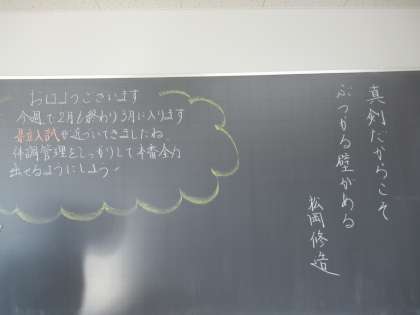 おはようございます
今週で2月も終わり3月に入ります
県立入試が近づいてきましたね。
体調管理をしっかりして本番全力
出せるようにしよう!
真剣だからこそ
ぶつかる壁がある
松岡修造